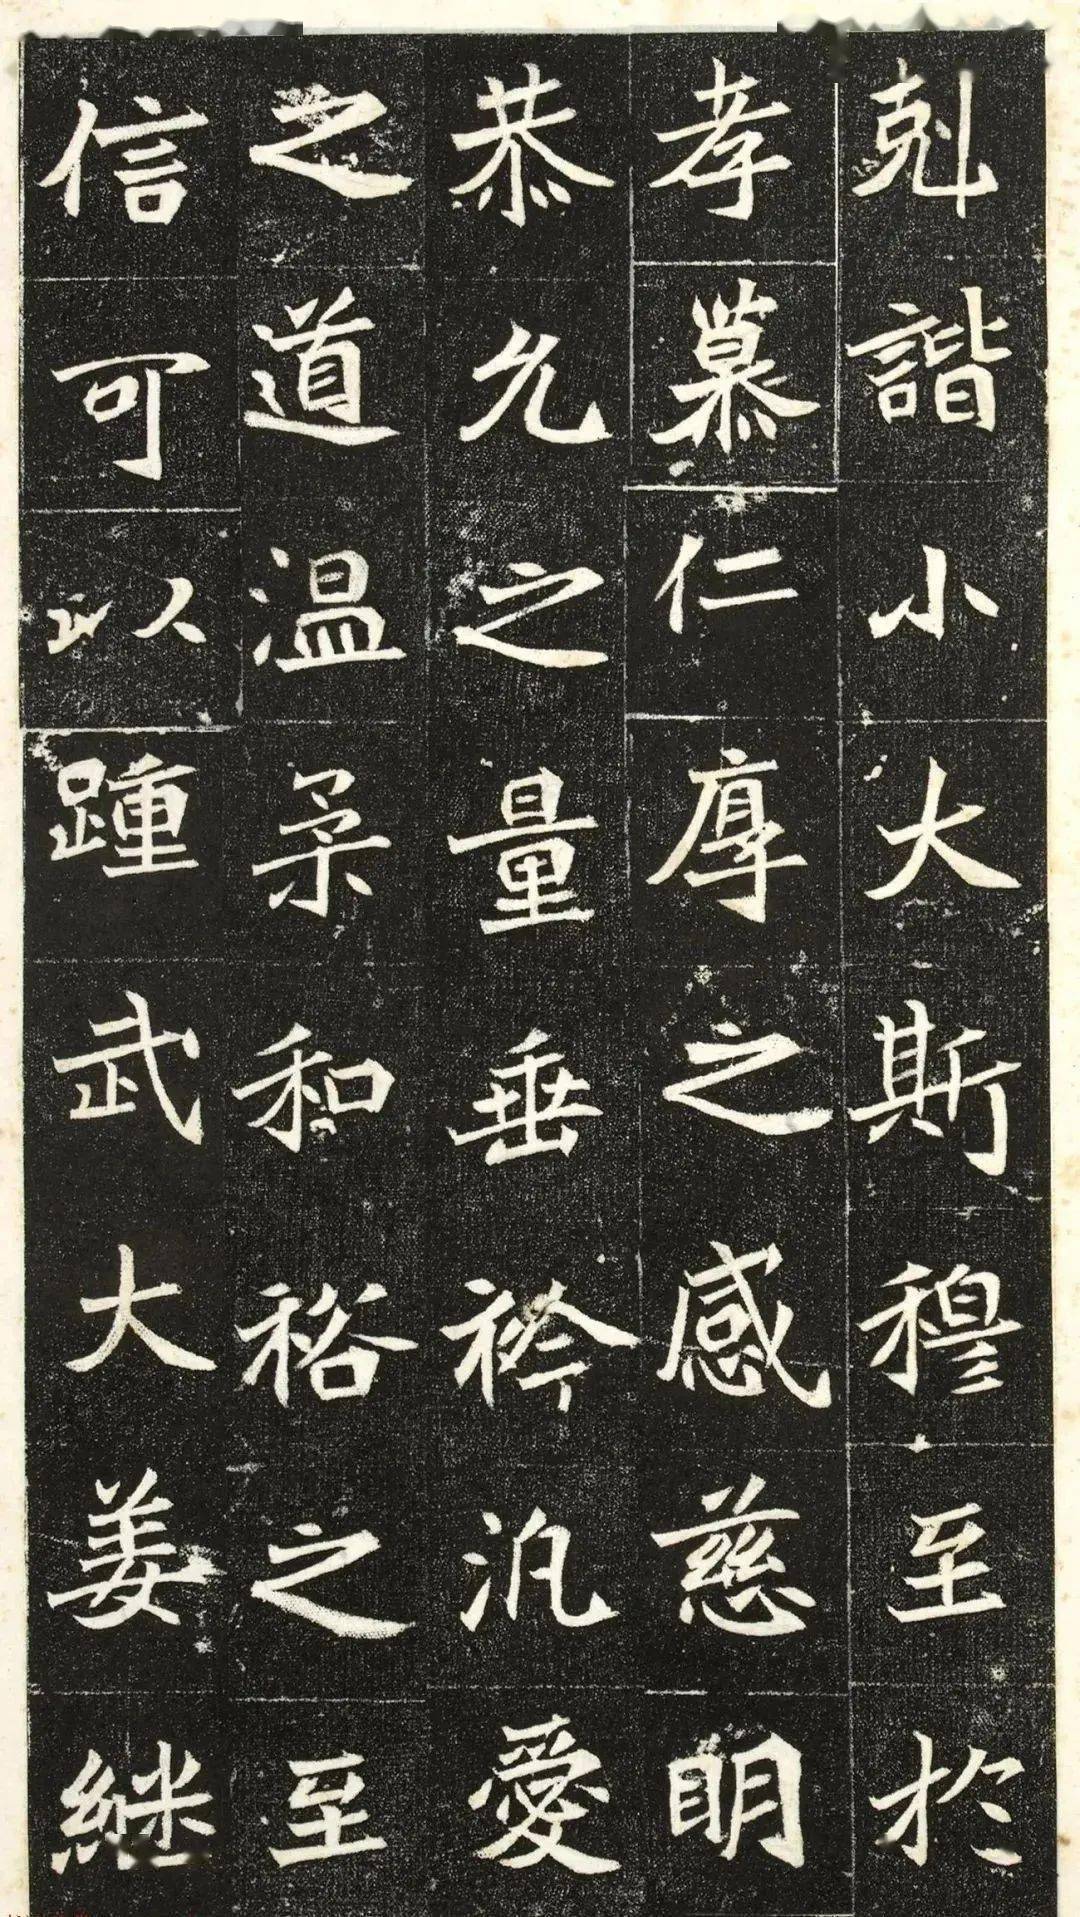 剋諧小大斯穆至於
孝慕仁厚之感慈明
恭允之量垂衿汎愛
之道温柔和裕之至
信可以踵武大姜継